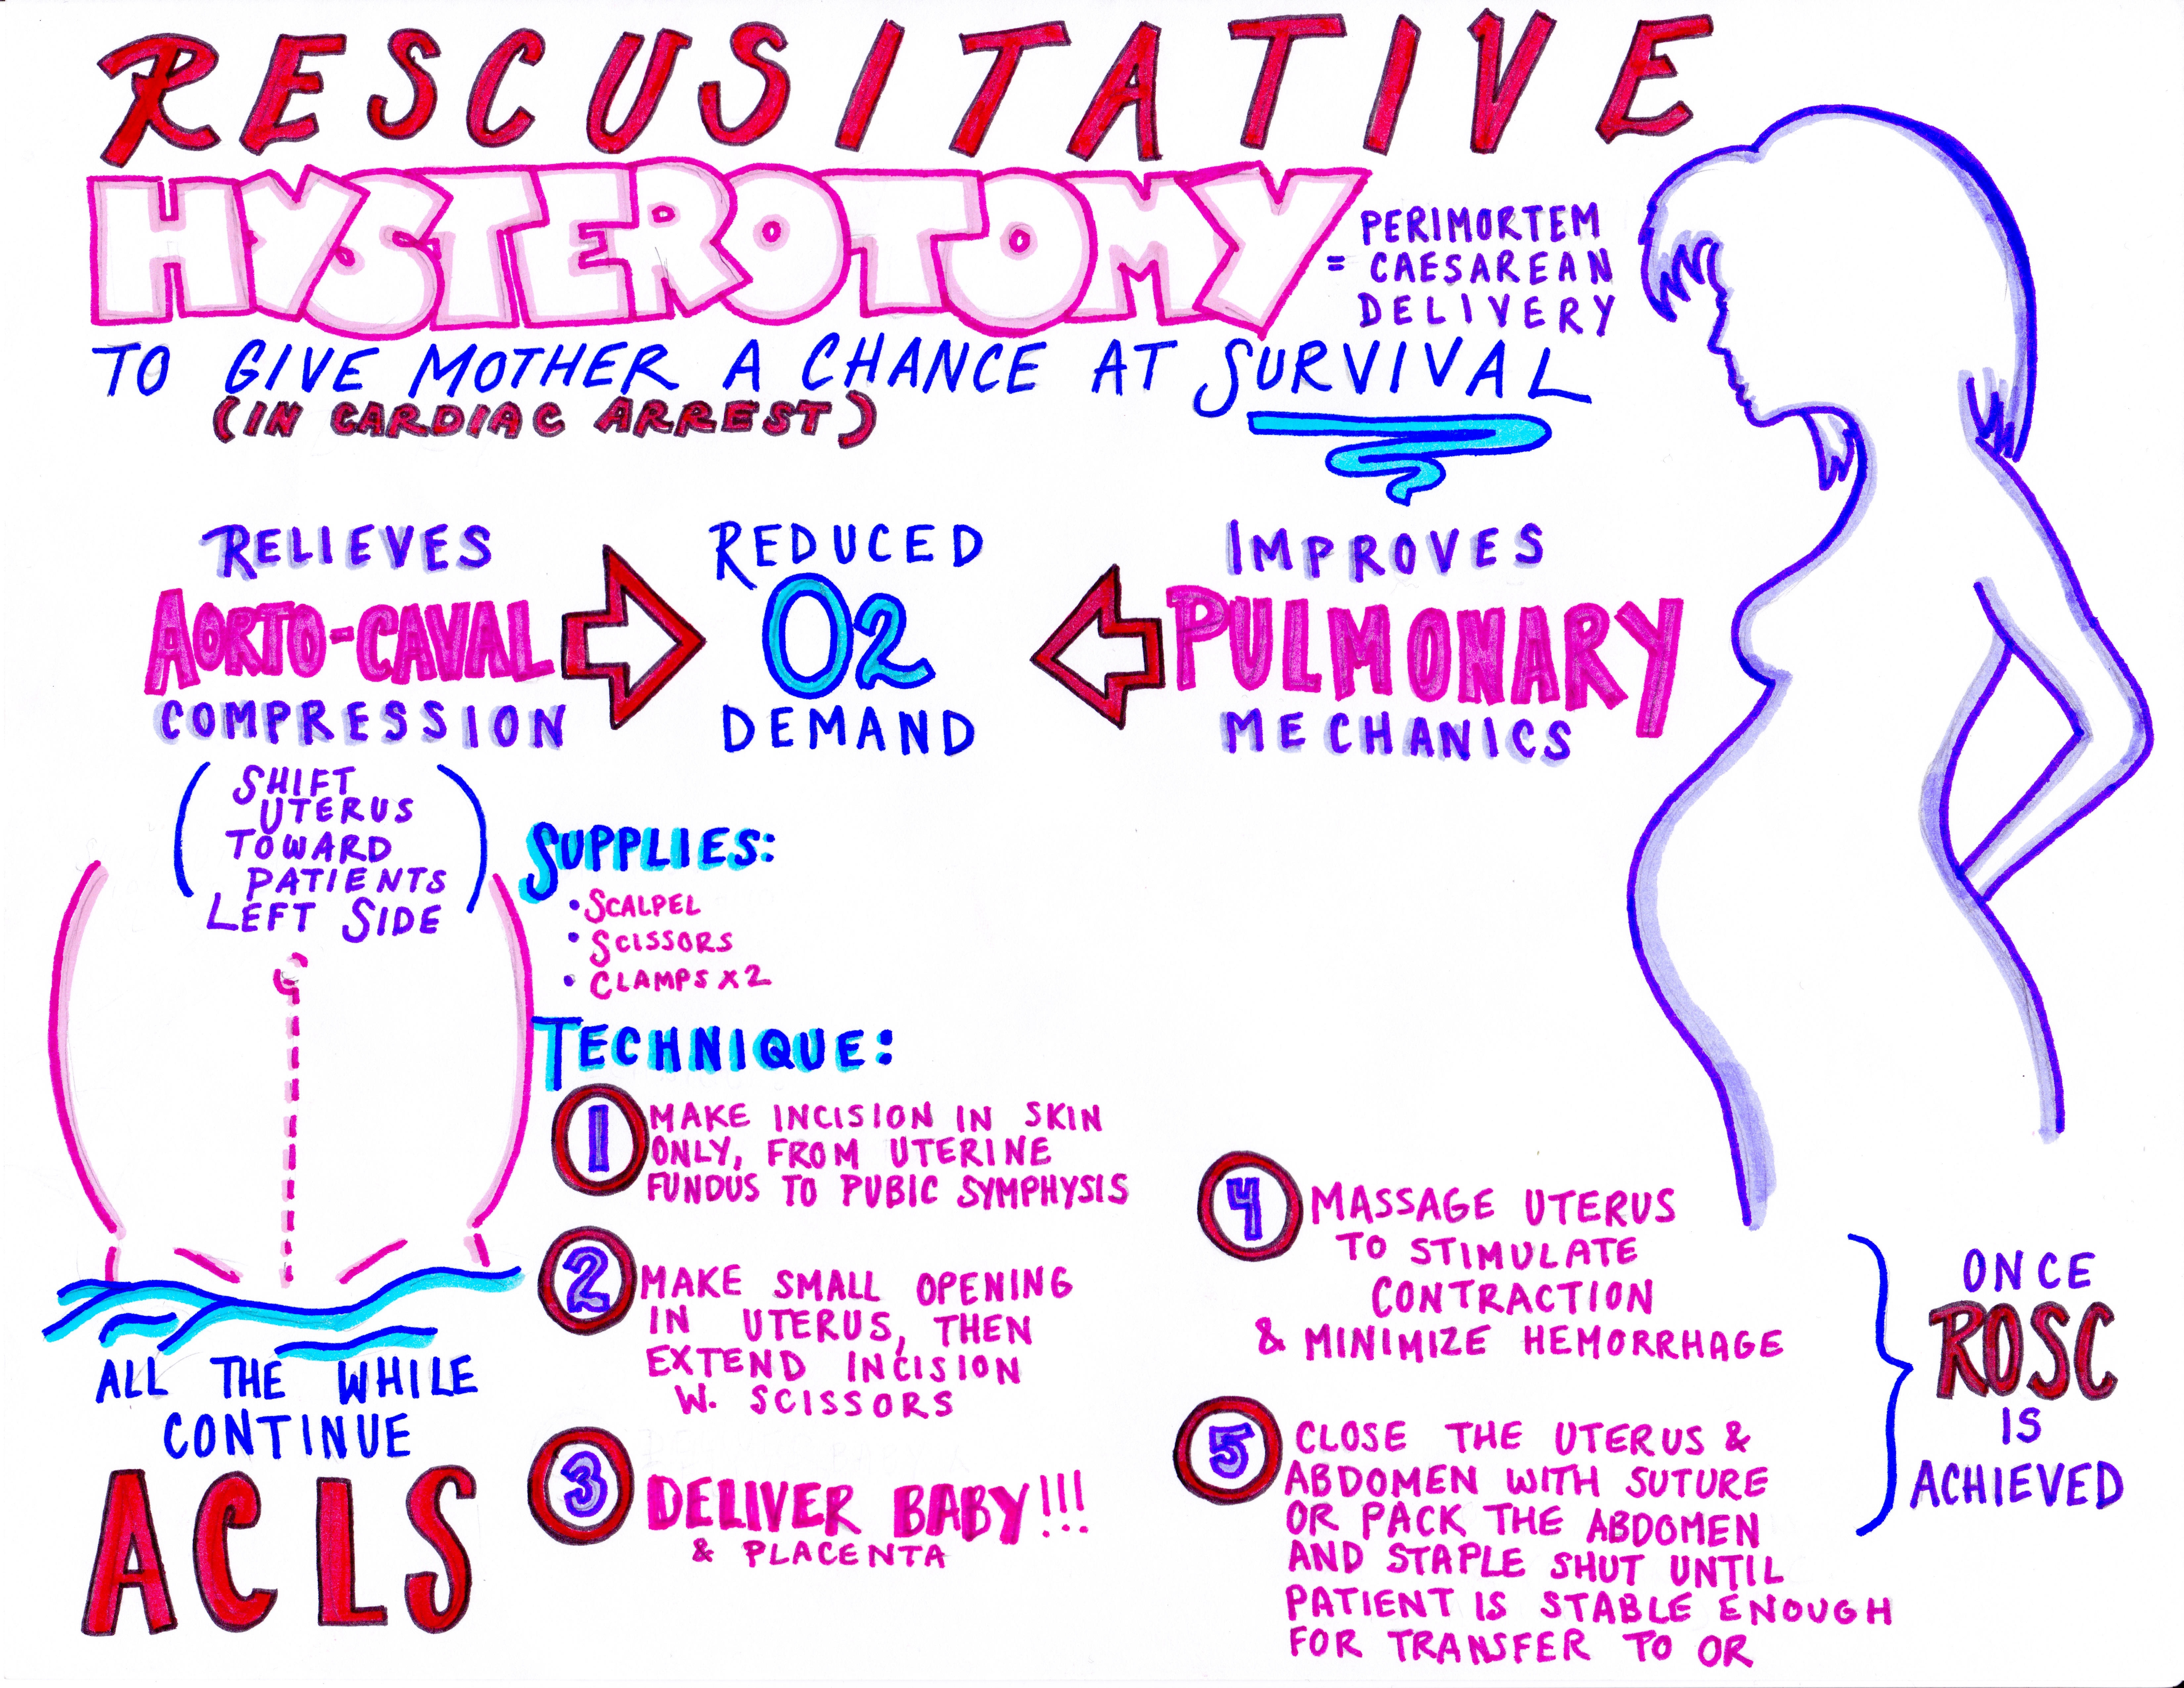 RESCUSITATIVE
HYSTEROTOMY
PERIMORTEM
= CAESAREAN
DELIVERY
TO GIVE MOTHER A CHANCE AT SURVIVAL
(IN CARDIAC ARREST)
RELIEVES
AORTO-CAVAL
COMPRESSION
REDUCED
O2
DEMAND
IMPROVES
PULMONARY
MECHANICS
(SHIFT
UTERUS
TOWARD
PATIENTS
LEFT SIDE)
SUPPLIES:
• SCALPEL
• SCISSORS
• CLAMPS X2
TECHNIQUE:
1 MAKE INCISION IN SKIN
ONLY, FROM UTERINE
FUNDUS TO PUBIC SYMPHYSIS
2 MAKE SMALL OPENING
IN UTERUS, THEN
EXTEND INCISION
W. SCISSORS
3 DELIVER BABY!!!
& PLACENTA
ALL THE WHILE
CONTINUE
ACLS
4 MASSAGE UTERUS
TO STIMULATE
CONTRACTION
& MINIMIZE HEMORRHAGE
5 CLOSE THE UTERUS &
ABDOMEN WITH SUTURE
OR PACK THE ABDOMEN
AND STAPLE SHUT UNTIL
PATIENT IS STABLE ENOUGH
FOR TRANSFER TO OR
ONCE
ROSC
IS
ACHIEVED